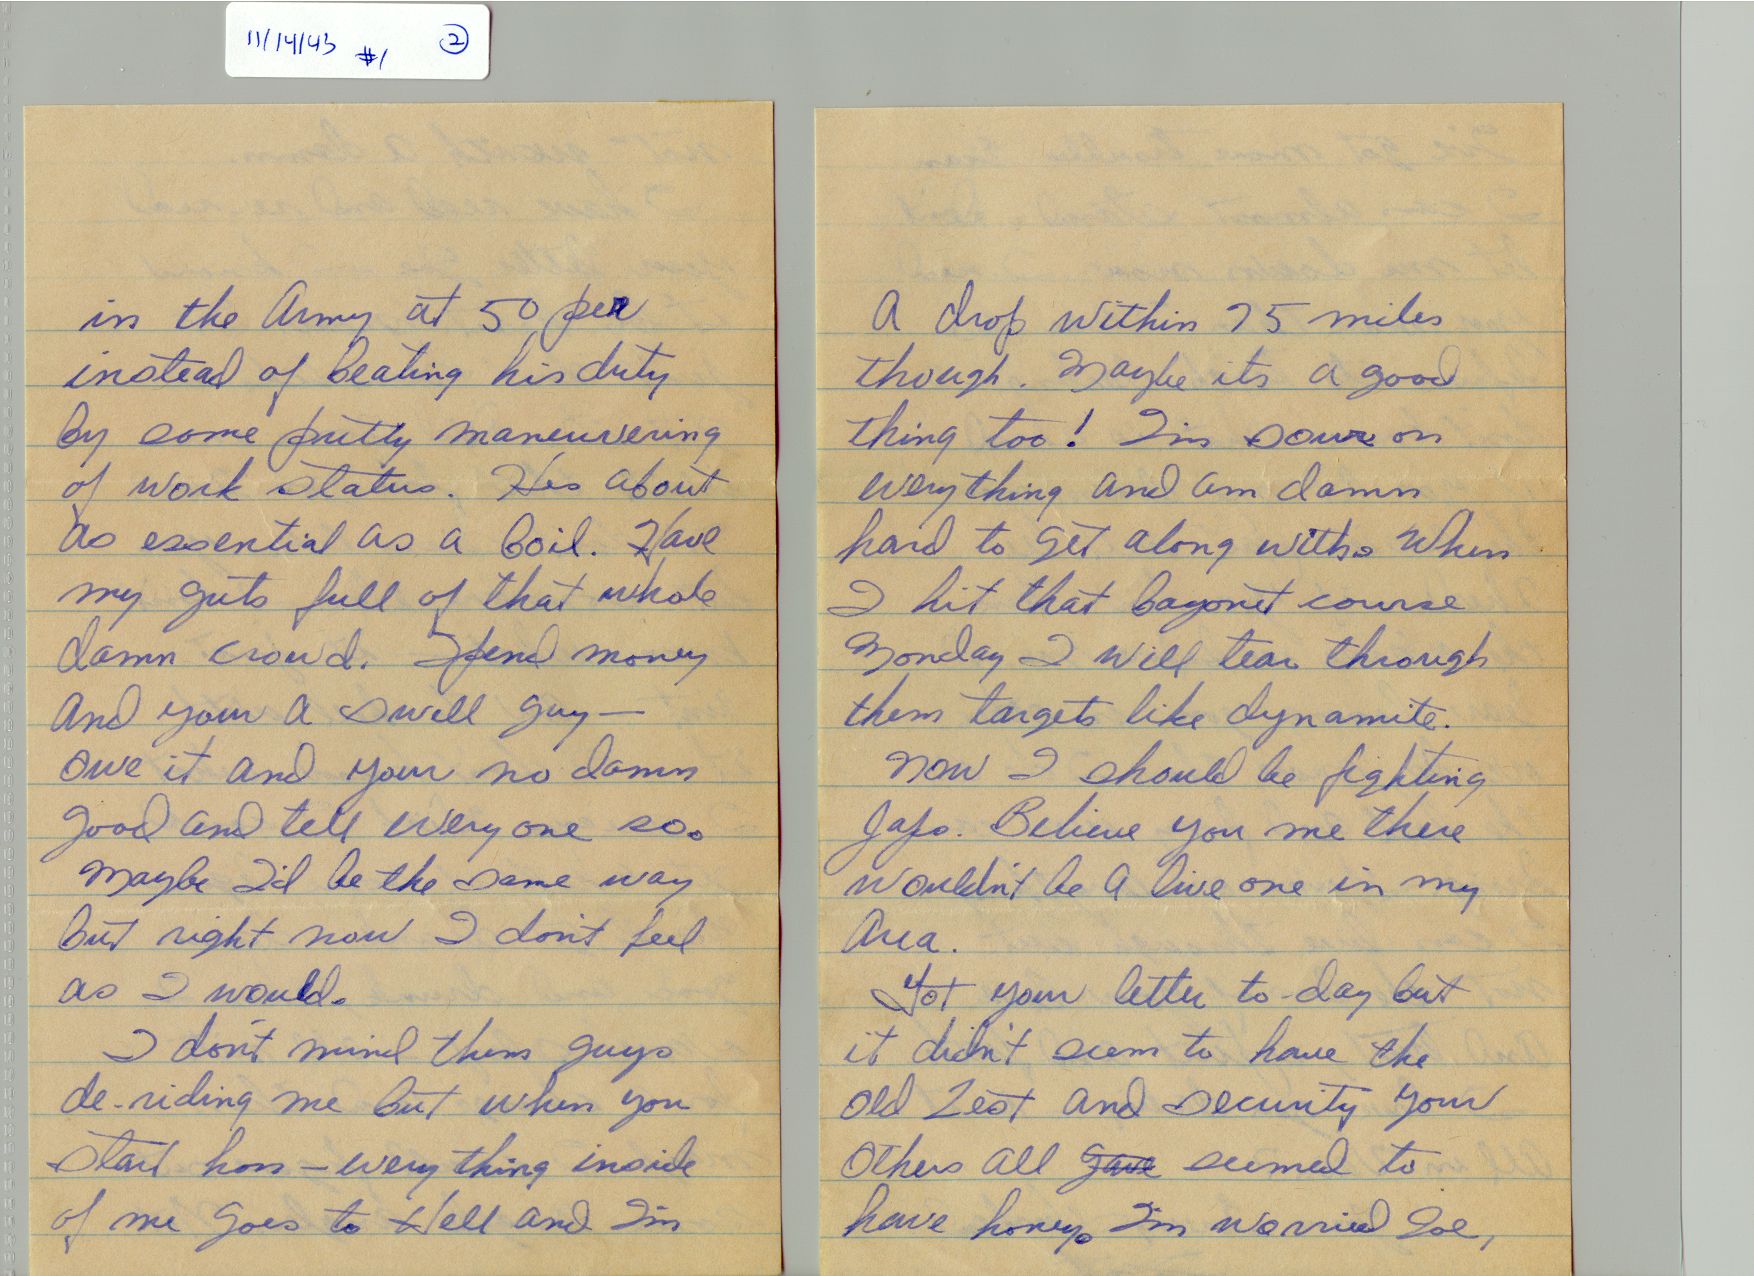 11/14/43 #1 2
in the Army at 50 per
instead of beating his duty
by some putty maneuvering
of work status. Hes about
as essential as a boil. Have
my guts full of that whole
damn crowd. Spend money
and your a swell guy—
owe it and your no damn
good and tell everyone so.
Maybe I'd be the same way
but right now I don't feel
as I would.
I don't mind them guys
de-riding me but when you
start hon – everything inside
of me goes to Hell and I'm
A drop within 75 miles
though. Maybe its a good
thing too! I'm sour on
everything and am damn
hard to get along with. When
I hit that bayonet course
Monday I will tear through
them targets like dynamite.
Now I should be fighting
Japs. Believe you me there
wouldn't be a live one in my
area.
Got your letter to-day but
it didn't seem to have the
old Zest and security your
others all gave seemed to
have honey. I'm worried Zoe,